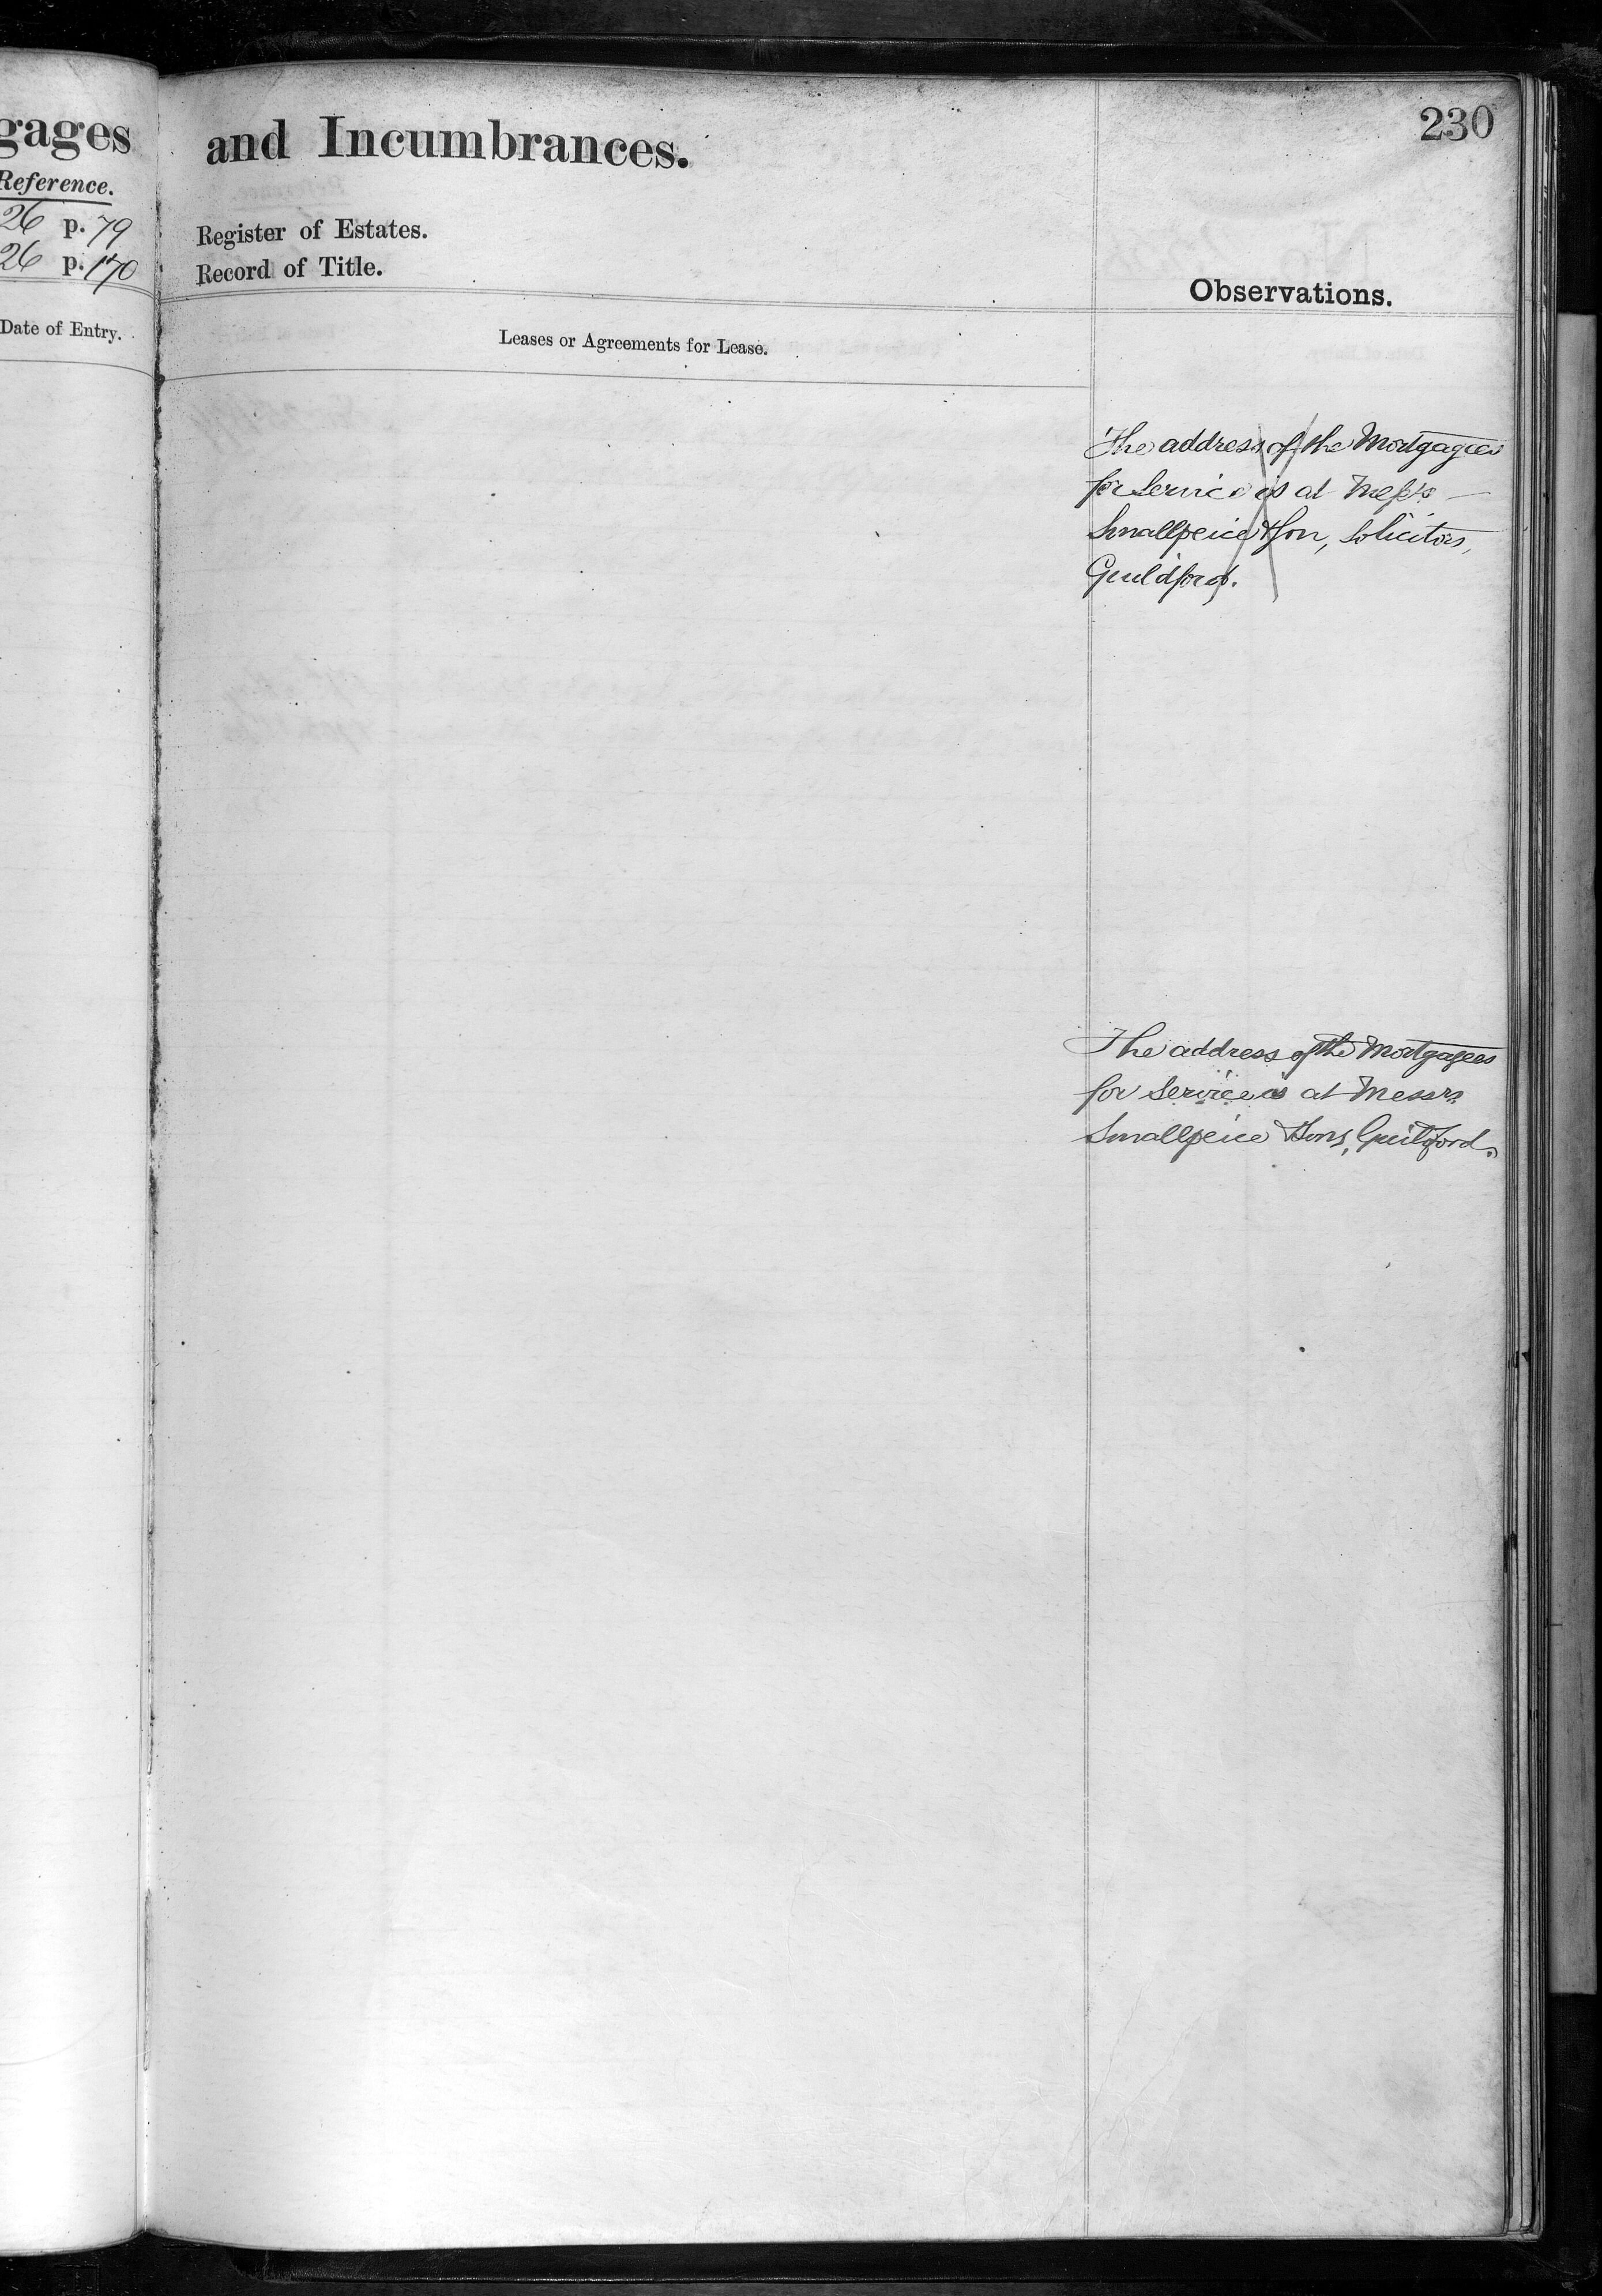 gages
Reference.
26 p. 79
26 p. 170
Date of Entry.
230
and Incumbrances.
Register of Estates.
Record of Title.
Observations.
Leases or Agreements for Lease.
The address of the Mortgagees
for Service is at Messrs
Smallpeice & Son, Solicitors,
Guildford.
The address of the Mortgagees
for Service is at Messrs
Smallpeice & Sons, Guildford.